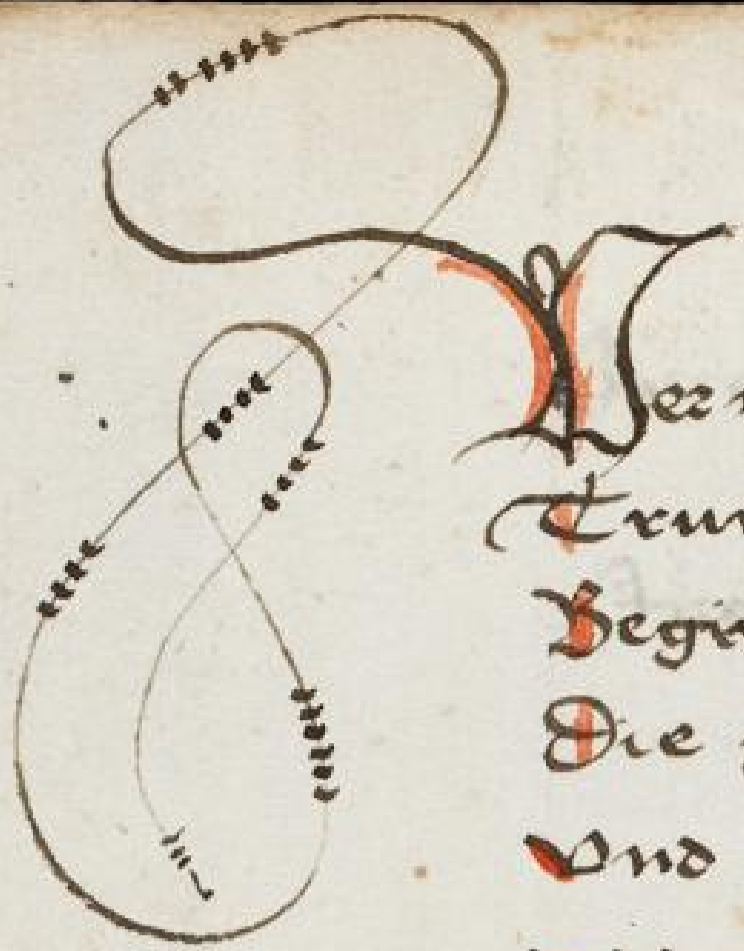 Wer
Trun
Begir
Die
Vnd